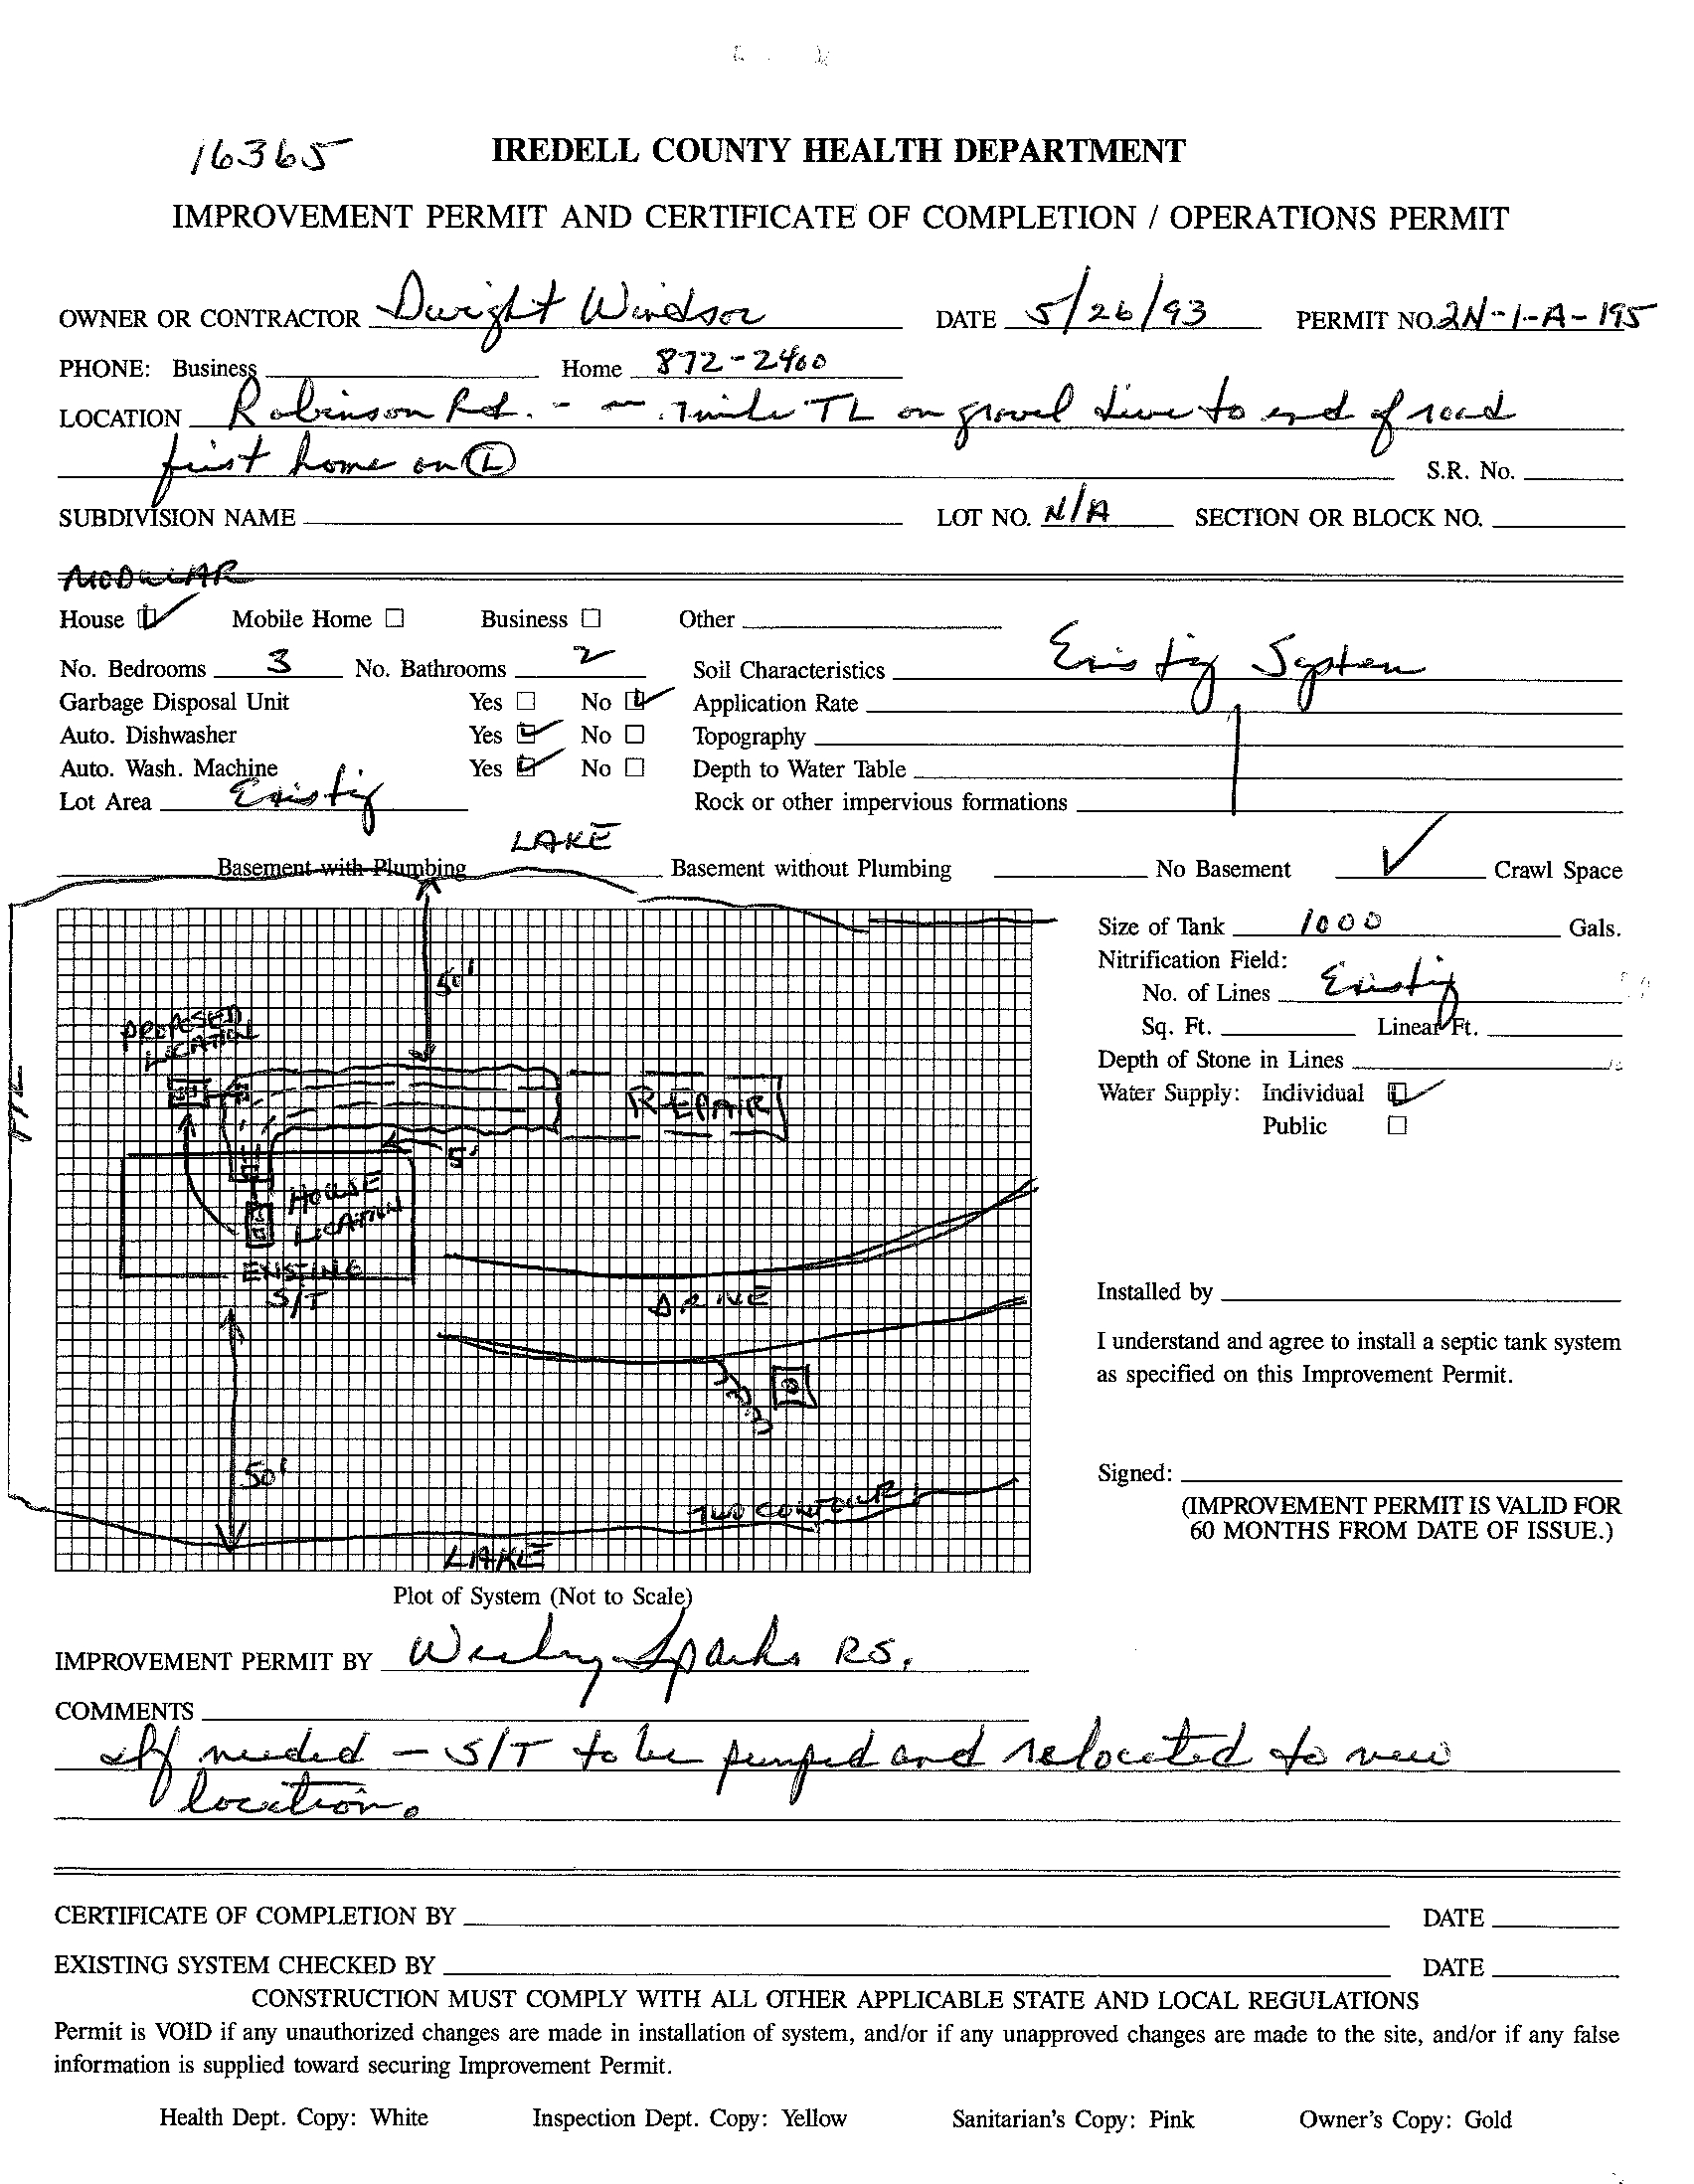 16365 IREDELL COUNTY HEALTH DEPARTMENT
IMPROVEMENT PERMIT AND CERTIFICATE OF COMPLETION / OPERATIONS PERMIT
OWNER OR CONTRACTOR Dwight Windsor DATE 5/26/93 PERMIT NO. 2N-1-A-195
PHONE: Business Home 872-2400
LOCATION Robinson Rd. - .7 mile TL on gravel drive to end of road
first home on L S.R. No.
SUBDIVISION NAME LOT NO. N/A SECTION OR BLOCK NO.
MODULAR
House Mobile Home Business Other
No. Bedrooms 3 No. Bathrooms 2 Soil Characteristics Existing System
Garbage Disposal Unit Yes No Application Rate
Auto. Dishwasher Yes No Topography
Auto. Wash. Machine Yes No Depth to Water Table
Lot Area Existing Rock or other impervious formations
LAKE
Basement with Plumbing Basement without Plumbing No Basement Crawl Space
Size of Tank 1000 Gals.
Nitrification Field:
No. of Lines Existing
Sq. Ft. Linear Ft.
Depth of Stone in Lines
Water Supply: Individual
Public
50'
PROPOSED
LOCATION
P/L
REPAIR
5'
HOUSE
LOCATION
EXISTING
S/T
DRIVE
50'
760 CONTOUR
LAKE
Installed by
I understand and agree to install a septic tank system
as specified on this Improvement Permit.
Signed:
(IMPROVEMENT PERMIT IS VALID FOR
60 MONTHS FROM DATE OF ISSUE.)
Plot of System (Not to Scale)
IMPROVEMENT PERMIT BY Wesley Sparks RS.
COMMENTS
If needed - S/T to be pumped and relocated to new
location.
CERTIFICATE OF COMPLETION BY DATE
EXISTING SYSTEM CHECKED BY DATE
CONSTRUCTION MUST COMPLY WITH ALL OTHER APPLICABLE STATE AND LOCAL REGULATIONS
Permit is VOID if any unauthorized changes are made in installation of system, and/or if any unapproved changes are made to the site, and/or if any false
information is supplied toward securing Improvement Permit.
Health Dept. Copy: White Inspection Dept. Copy: Yellow Sanitarian's Copy: Pink Owner's Copy: Gold